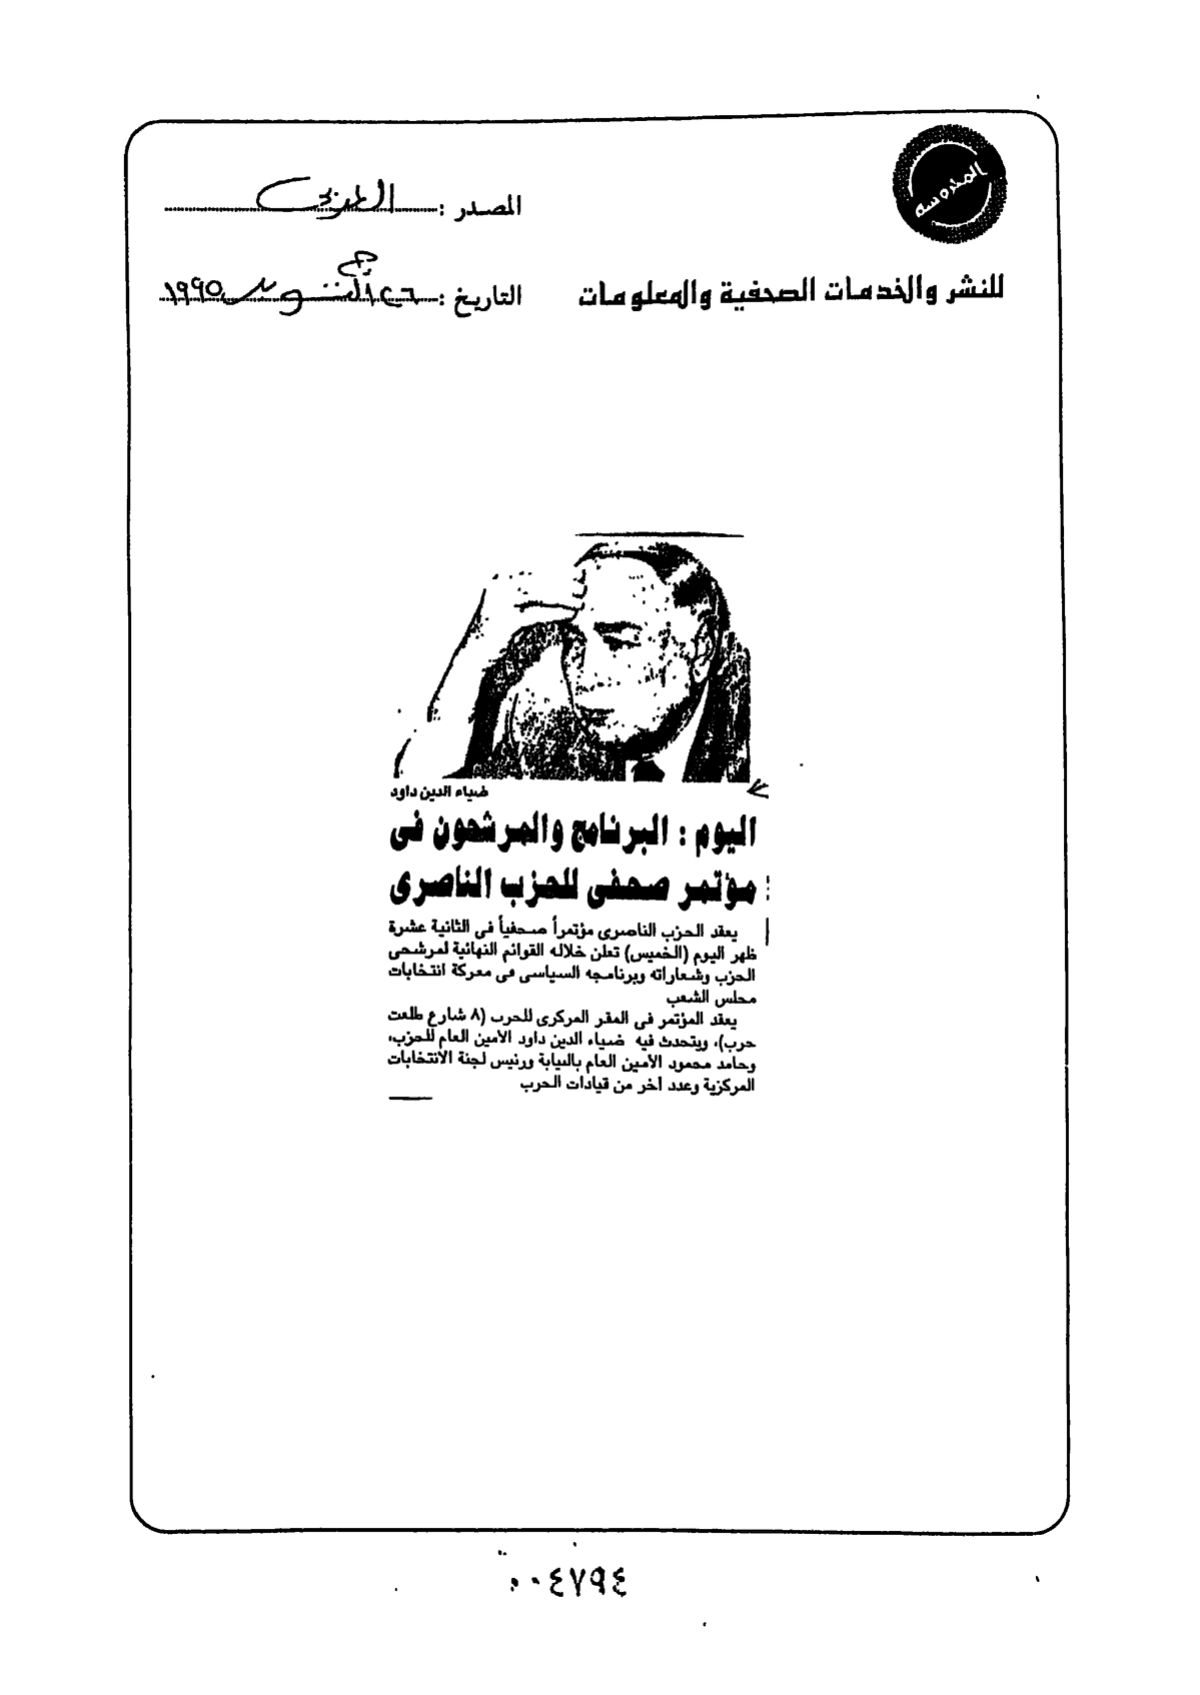 المحروسة
للنشر والخدمات الصحفية والمعلومات
المصدر : العربى
التاريخ : ٢٦ أكتوبر ١٩٩٥
ضياء الدين داود
اليوم : البرنامج والمرشحون فى
مؤتمر صحفى للحزب الناصرى
يعقد الحزب الناصرى مؤتمرأ صحفيأ فى الثانية عشرة
ظهر اليوم (الخميس) تعلن خلاله القوائم النهائية لمرشحى
الحزب وشعاراته وبرنامجه السياسى فى معركة انتخابات
مجلس الشعب
يعقد المؤتمر فى المقر المركزى للحزب (٨ شارع طلعت
حرب)، ويتحدث فيه ضياء الدين داود الأمين العام للحزب،
وحامد محمود الأمين العام بالنيابة ورئيس لجنة الانتخابات
المركزية وعدد اخر من قيادات الحزب
٠٠٤٧٩٤